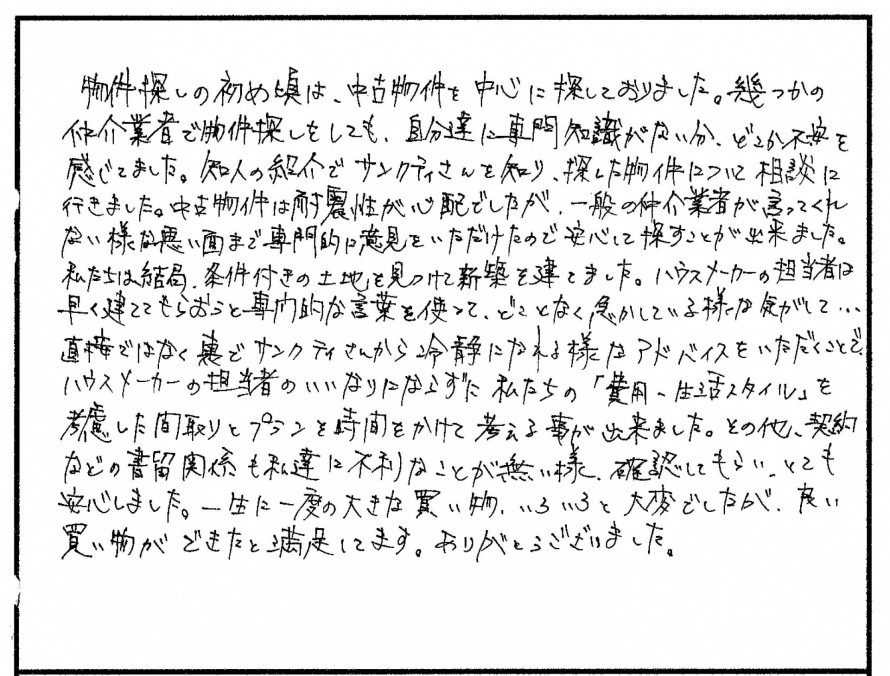 物件探しの初め頃は、中古物件を中心に探しておりました。幾つかの
仲介業者で物件探しをしても、自分達に専門知識がない分、どこか不安を
感じてました。知人の紹介でサンクティさんを知り、探した物件について相談に
行きました。中古物件は耐震性が心配でしたが、一般の仲介業者が言ってくれ
ない様な悪い面まで専門的に意見をいただけたので安心して探すことが出来ました。
私たちは結局、条件付きの土地を見つけて新築を建てました。ハウスメーカーの担当者は
早く建ててもらおうと専門的な言葉を使って、どことなく急かしている様な気がして…
直接ではなく裏でサンクティさんから冷静になれる様なアドバイスをいただくことで、
ハウスメーカーの担当者のいいなりにならずに私たちの「費用・生活スタイル」を
考慮した間取りとプランを時間をかけて考える事が出来ました。その他、契約
などの書留関係も私達に不利なことが無い様、確認してもらい、とても
安心しました。一生に一度の大きな買い物、いろいろと大変でしたが、良い
買い物ができたと満足してます。ありがとうございました。